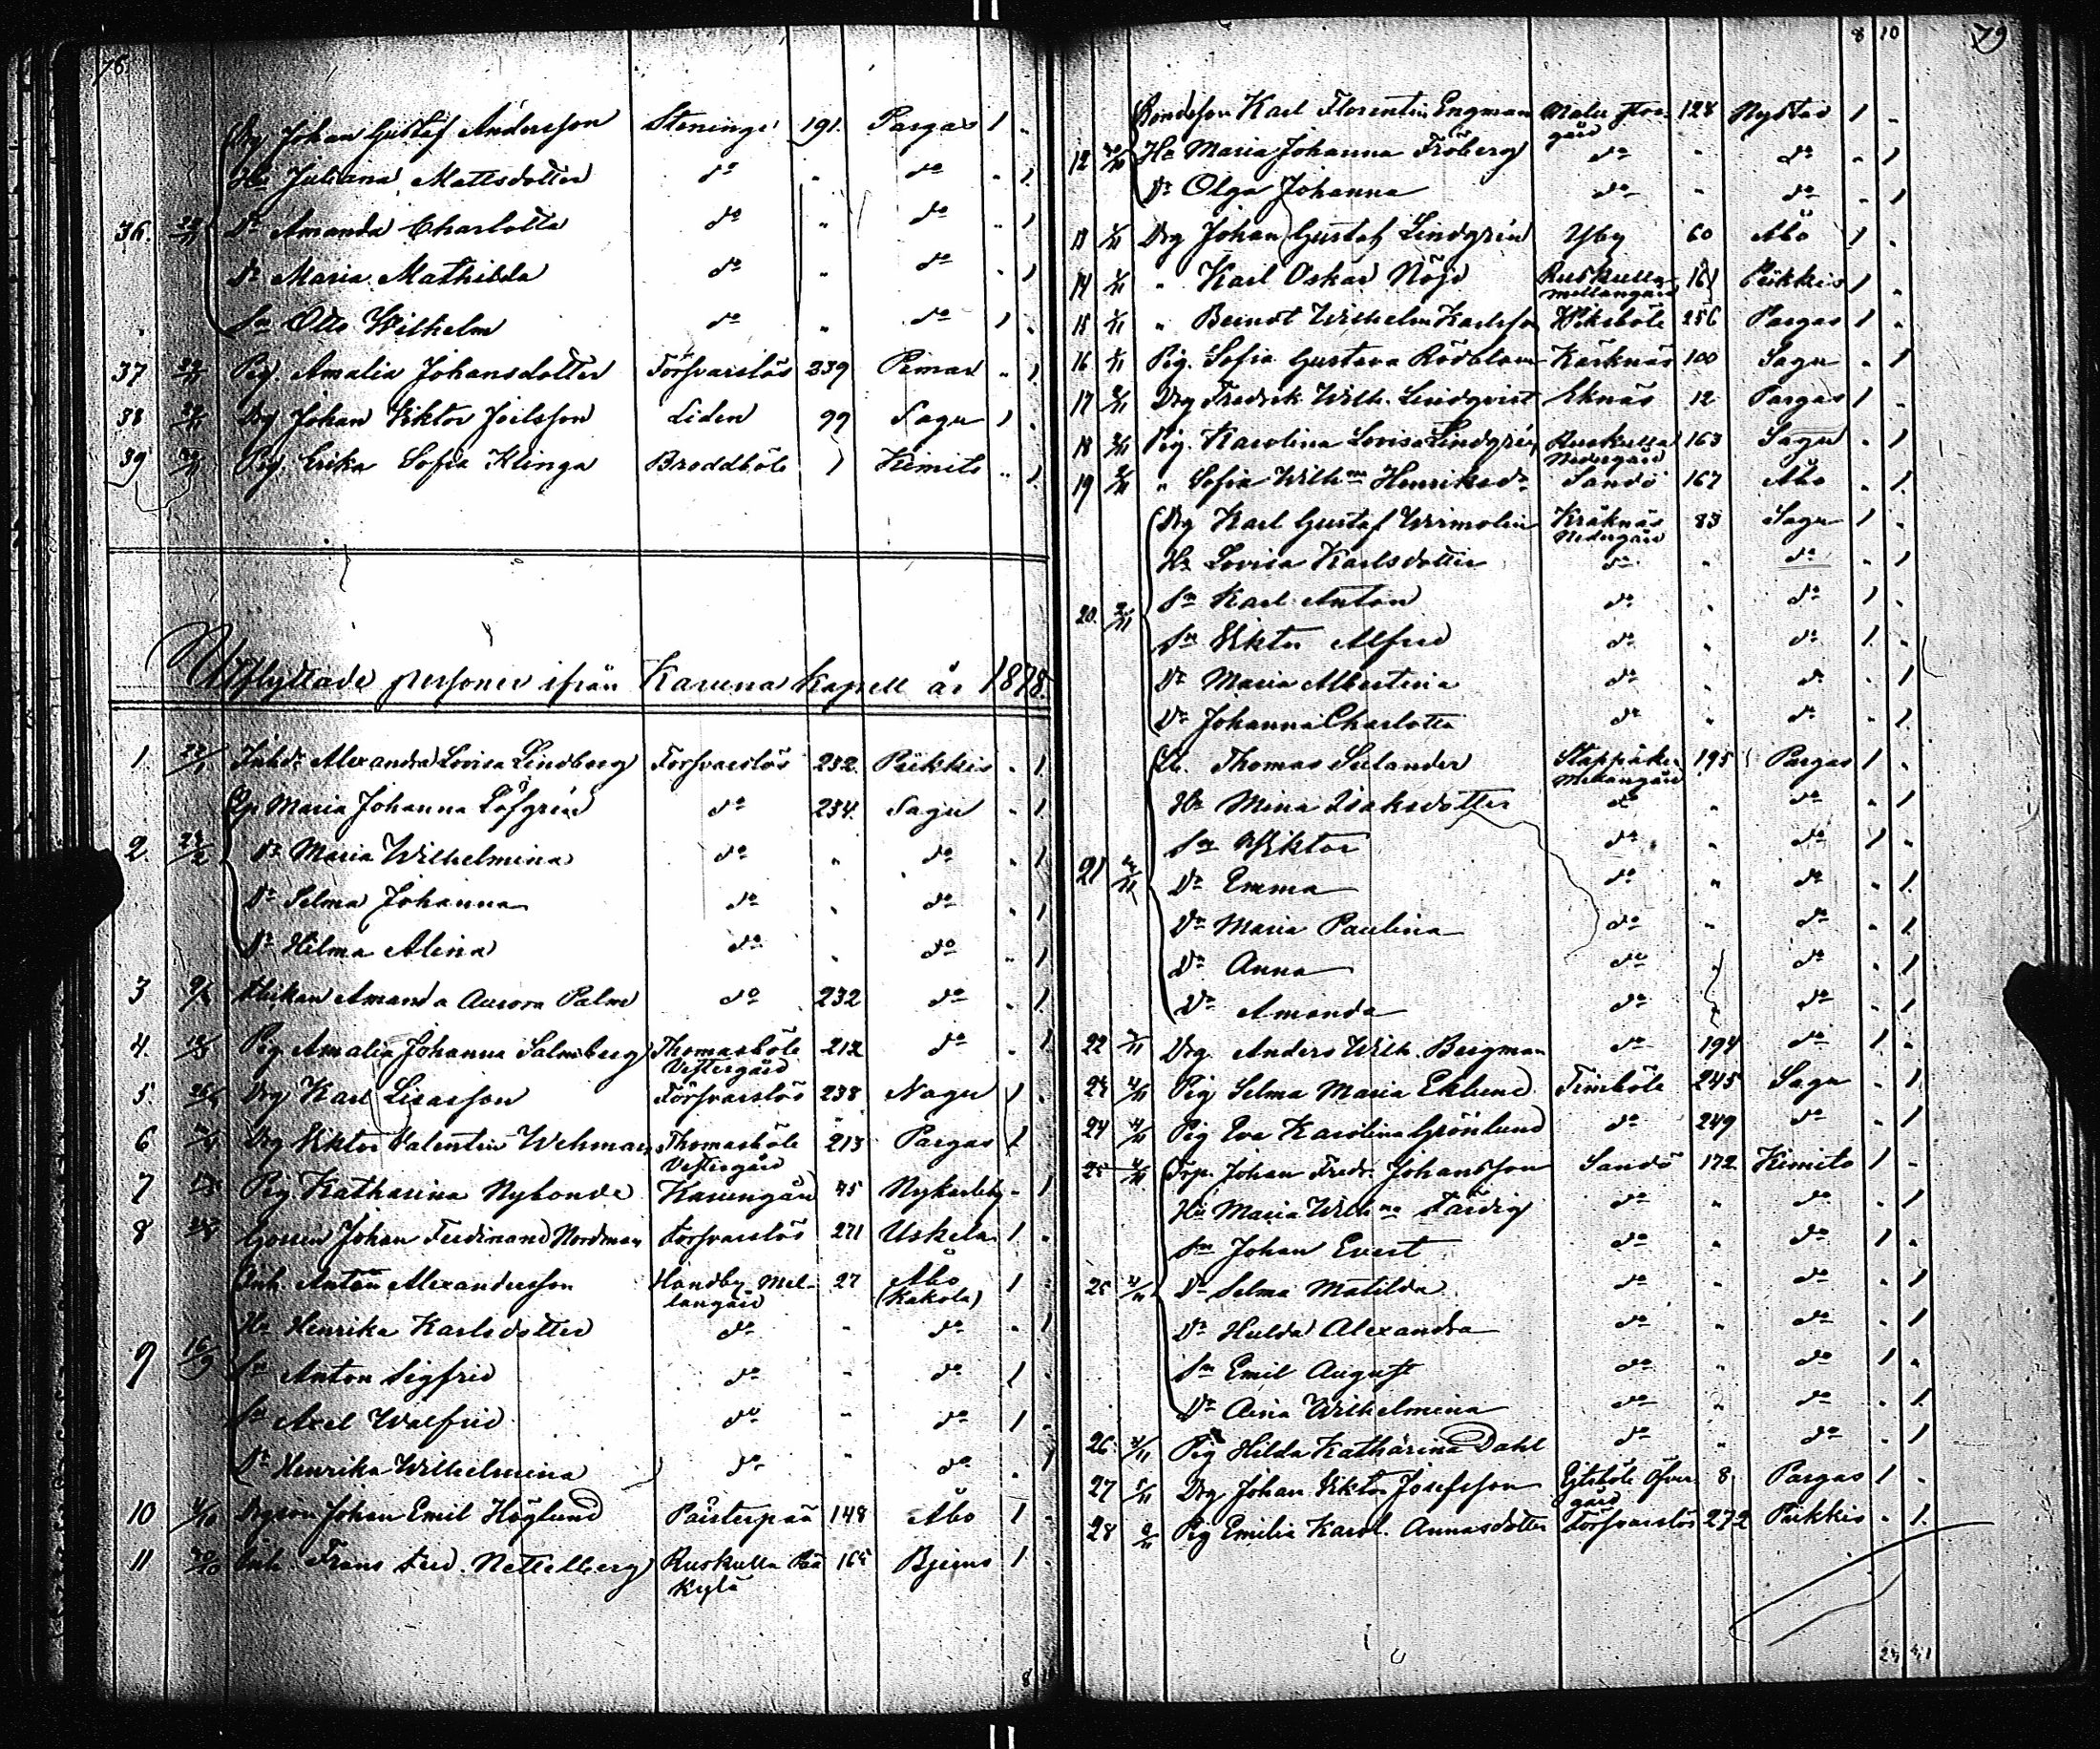 78.
Drg Johan Gustaf Andersson Steninge 191. Pargas 1 "
Hu Juliana Mattsdotter do " do " 1.
36. 22/11 Dr Amanda Charlotta do " do " 1
Dr Maria Mathilda do " do " 1
Sn Otto Wilhelm do " do 1 "
37 Pig. Amalia Johansdotter Försvarslös 239 Pemar " 1
38 Drg Johan Viktor Joelsson Liden 99 Sagu 1 "
39 Pig. Erika Sofia Klinga Broddböle 1 Kimito " 1.
Utflyttade personer ifrån Karuna Kapell år 1878.
1 Inhdr Alexandra Lovisa Lindberg Forsvarslös 232. Piikkis " 1.
Maria Johanna Löfgrén do 234. Sagu " 1.
2. Dr Maria Wilhelmina do " do " 1.
Dr Selma Johanna do " do " 1
Dr Hilma Alina do " do " 1.
3 Amanda Aurora Palm do 232 do " 1.
4. Pig Amalia Johanna Salmberg Thomasböle 212 do " 1
Vestergård
5 Drg Karl Försvarslös 238 Nagu 1 "
6 Drg Viktor Valentin Wehman Thomasböle 213 Pargas 1
Vestergård
7 Pig Katharina Nybonde Karungård 45 Nykarleby " 1
8 Gossen Johan Ferdinand Nordman Forsvarslös 271 Uskela 1 "
Inh. Anton Alexandersson Handby Mel- 27 Åbo 1 "
langård (Kakola)
Hu Henrika Karlsdotter do " do " 1
9 16/9 Sn Anton Sigfrid do " do 1 "
Sn Axel Walfrid do " do 1 "
Dr Henrika Wilhelmina do " do " 1
10 4/10 Drgson Johan Emil Höglund Paisterpää 148 Åbo 1 "
11 30/10 Inh. Frans Fred. Nettelberg Ruskulla Pää 165 Bjerno 1 "
kylä
8
8 10 79
Bondeson Karl Florentin Engman 128 Nystad 1 "
gård
12 Hu Maria Johanna Fröberg do " do " 1
Dr Olga Johanna do " do " 1
13 1/11 Drg Johan Gustaf Lindgrén Yby 60 Åbo 1 "
14 1/11 " Karl Oskar Nöjd Ruskulla 161 Piikkis 1 "
mellangård
15 1/11 " Berndt Wilhelm Karlsson Wiksböle 256 Pargas 1 "
16 1/11 Pig. Sofia Gustava Rödblom Karknäs 100 Sagu " 1
17 2/11 Drg Fredrik Wilh. Lindqvist Eknäs 12 Pargas 1 "
18 2/11 Pig. Karolina Lovisa Lindgrén Ruskulla 163 Sagu " 1
Nedergård
19 2/11 " Sofia Wilhna Henriksdr Sandö 167 Åbo " 1.
Drg Karl Gustaf Wirmolin Kräknäs 83 Sagu 1 "
Nedergård
Hu Lovisa Karlsdotter do " do " 1
20. 2/11 Sn Karl Anton do " do 1 "
Sn Viktor Alfred do " do 1 "
Dr Maria Albertina do " do " 1
Dr Johanna Charlotta do " do " 1
Thomas Selander Stappåker 195 Pargas 1 "
Mellangård
Hu Mina Isaksdotter do " do " 1
Sn Wiktor do " do 1 "
21 Dr Emma do " do " 1.
Dr Maria Paulina do " do " 1.
Dr Anna do " do " 1
Dr Amanda do " do " 1
22 Drg. Anders Wilh. Bergman do 194 do 1 "
23 4/11 Pig Selma Maria Eklund Timböle 245 Sagu " 1
24 4/11 Pig Eva Karolina Grönlund do 249 do " 1
25 4/11 Torp. Johan Fredr. Johansson Sandö 172 Kimito 1 "
Hu Maria Wilhna Färdig do " do " 1
Sn Johan Evert do " do 1 "
25 4/11 Dr Selma Matilda do " do " 1
Dr Hulda Alexandra do " do " 1
Sn Emil August do " do 1 "
Dr Aina Wilhelmina do " do " 1.
26. 4/11 Pig Hilda Katharina Dahl do " do " 1
27 5/11 Drg Johan Viktor Josefsson Öfver- 8 Pargas 1 "
gård
28 Pig Emilia Karol. Annasdotter Försvarslös 272 Piikkis " 1.